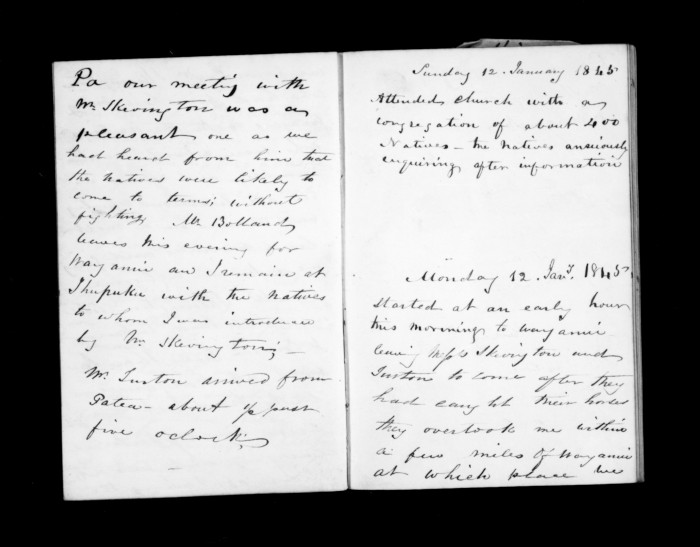 Pa our meeting with
Mr. Skevington was a
pleasant one as we
had heard from him that
the natives were likely to
come to terms without
fighting Mr. Bolland
leaves this evening for
and I remain at
with the natives
to whom I was introduced
by Mr. Skevington; —
Mr. Turton arrived from
Patea - about 1/2 past
five oclock
Sunday 12. January 1845
Attended church with a
congregation of about 400
Natives - the Natives anxiously
enquiring after information
Monday 12. Jany. 1845.
Started at an early hour
this morning to
leaving Skevington and
Turton to come after they
had caught their horses
they overtook me within
a few miles of
at which place we